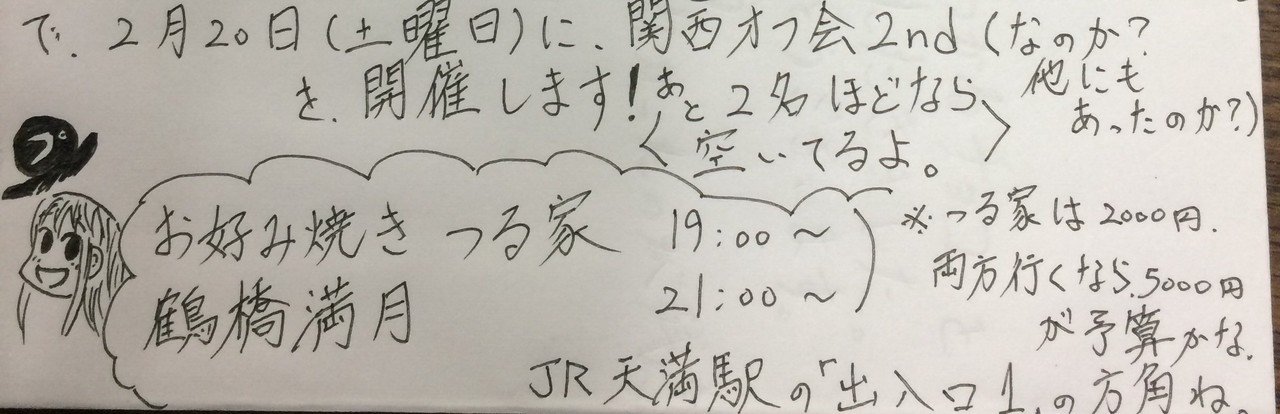 で、2月20日(土曜日)に、関西オフ会2nd(なのか?
他にも
あったのか?)
を、開催します!
あと2名ほどなら、
空いてるよ。
プ
お好み焼き つる家 19:00~
鶴橋満月 21:00~
※つる家は2000円。
両方行くなら、5000円
が予算かな。
JR天満駅の「出入口1」の方角ね。